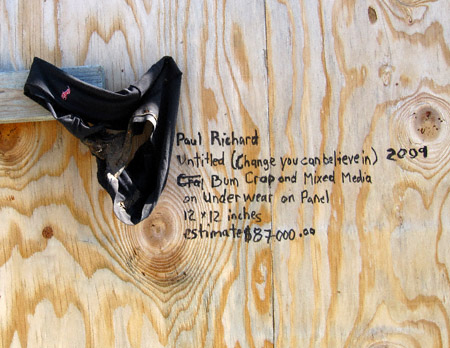 Paul Richard
Untitled (Change you can believe in) 2009
Bum Crap and Mixed Media
on Underwear on Panel
12 x 12 inches
estimate $87000.00